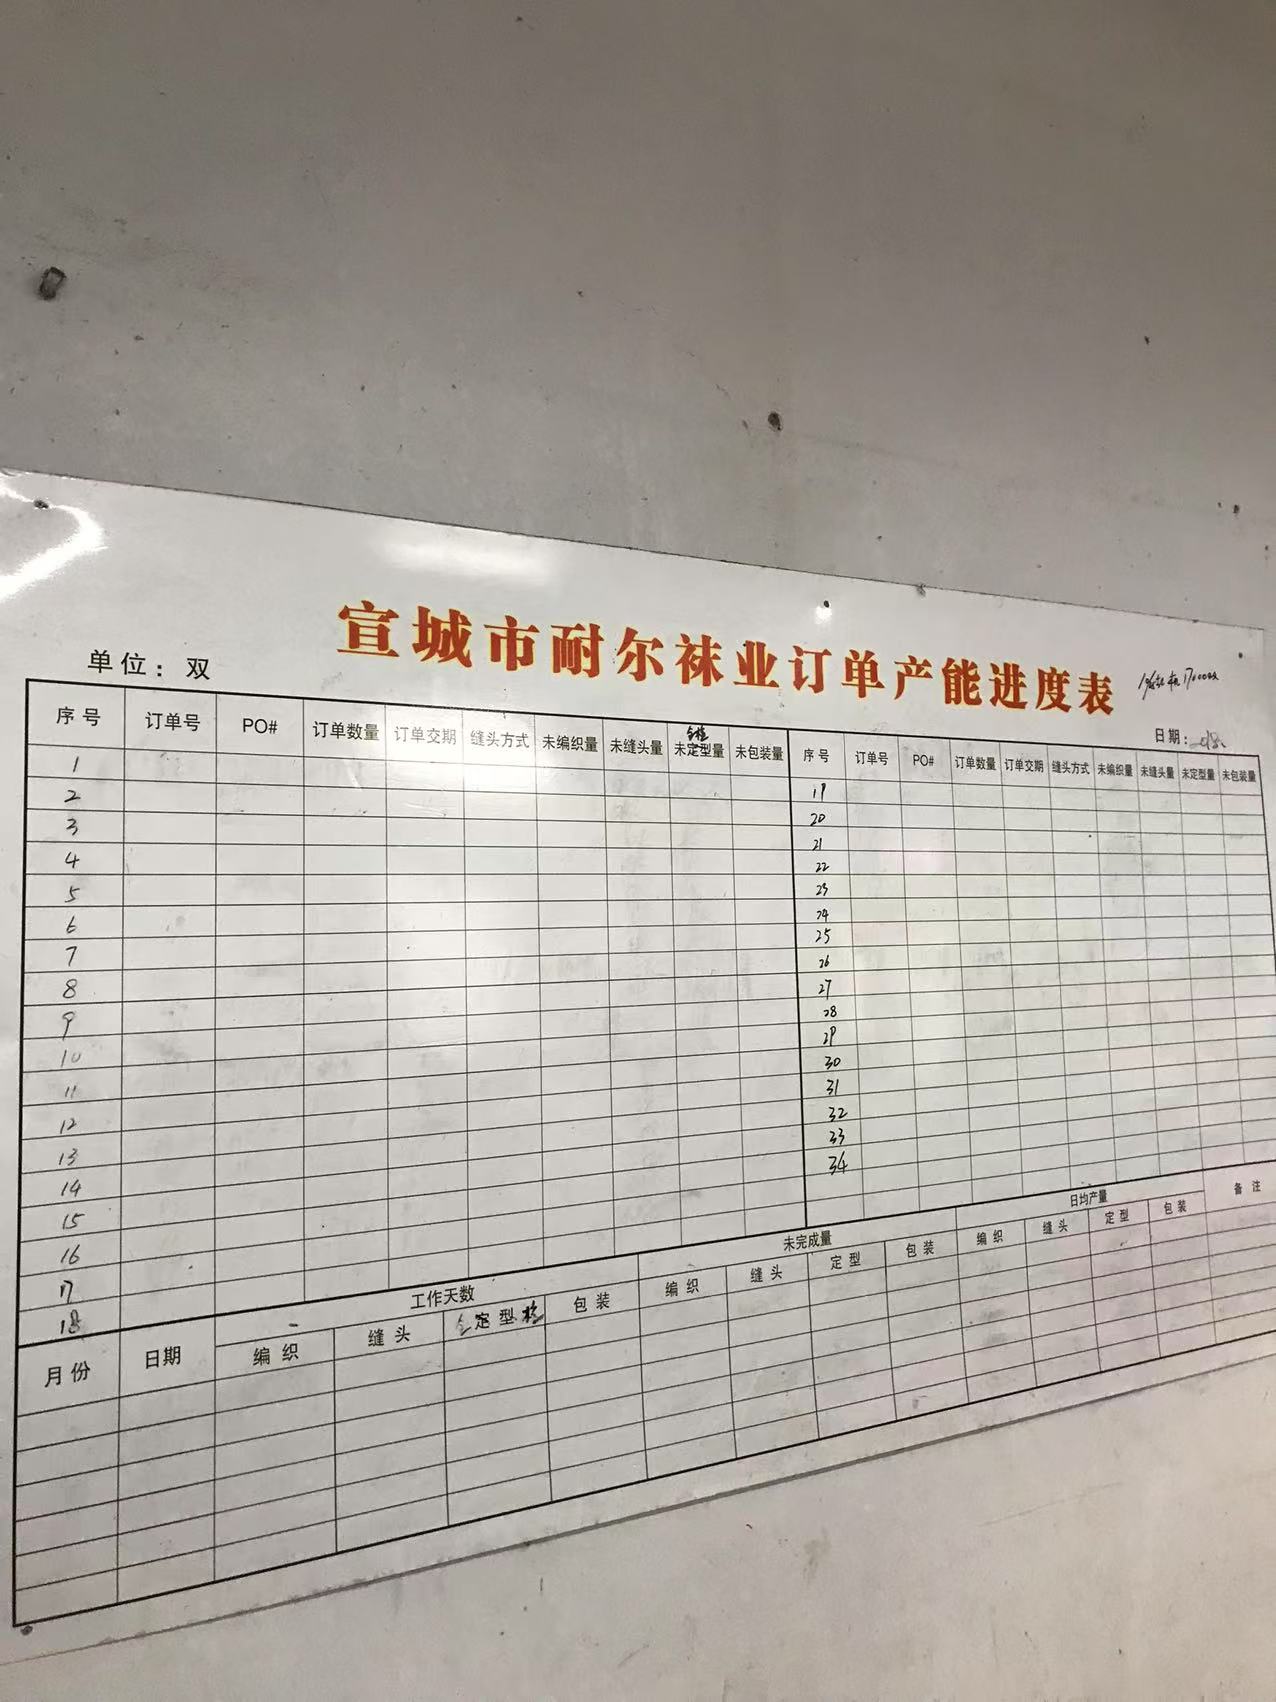 宣城市耐尔袜业订单产能进度表
单位：双
日期：
序号 订单号 PO# 订单数量 订单交期 缝头方式 未编织量 未缝头量 全检 未定型量 未包装量 序号 订单号 PO# 订单数量 订单交期 缝头方式 未编织量 未缝头量 未定型量 未包装量
1 19
2 20
3 21
4 22
5 23
6 24
7 25
8 26
9 27
10 28
11 29
12 30
13 31
14 32
15 33
16 34
17
18
月份 日期 工作天数 未完成量 日均产量 备注
编织 缝头 全定型检 包装 编织 缝头 定型 包装 编织 缝头 定型 包装